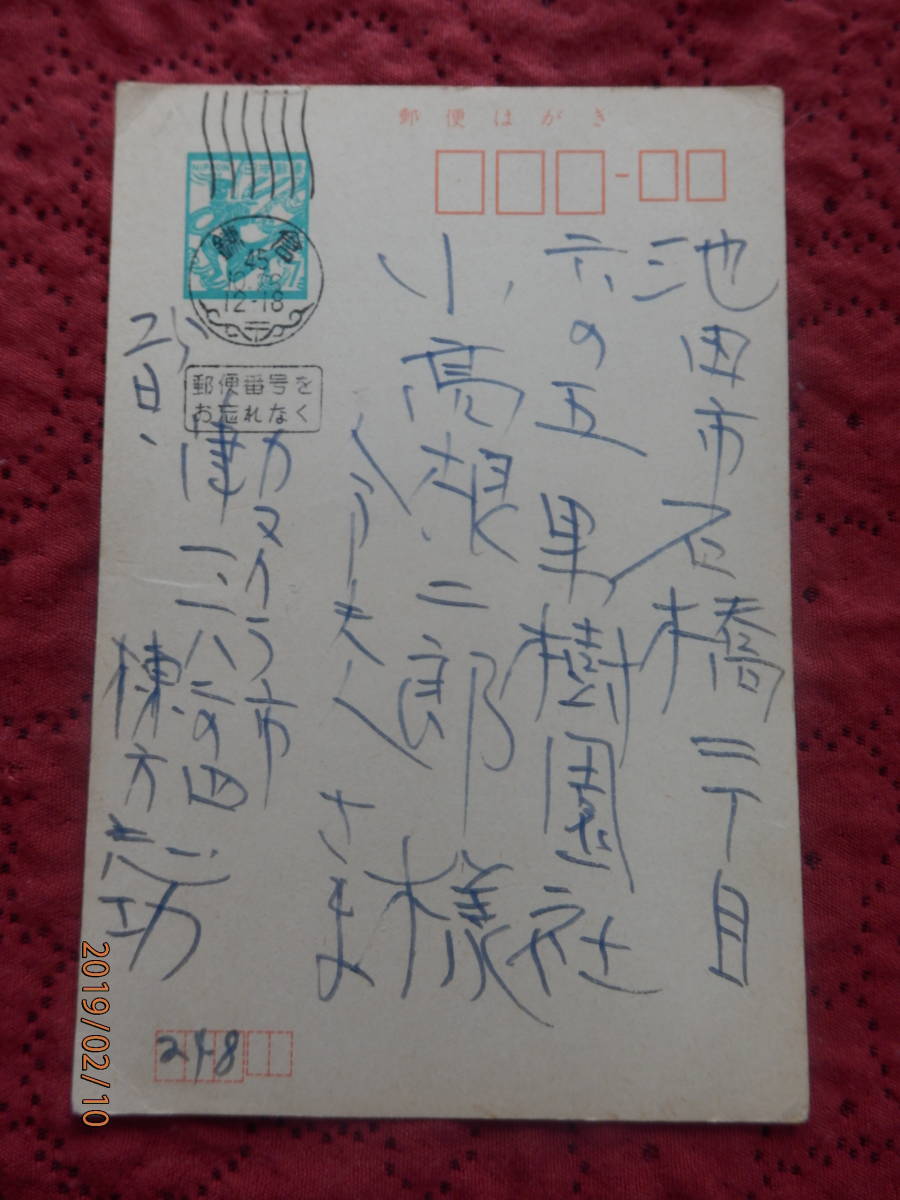 郵便はがき
池田市石橋二丁目
三
六の五 果樹園社
小高根二郎様
夫人さま
鎌倉
45
12-18
7
郵便番号を
お忘れなく
カマクラ市
津
棟方志功
248
2019/02/10